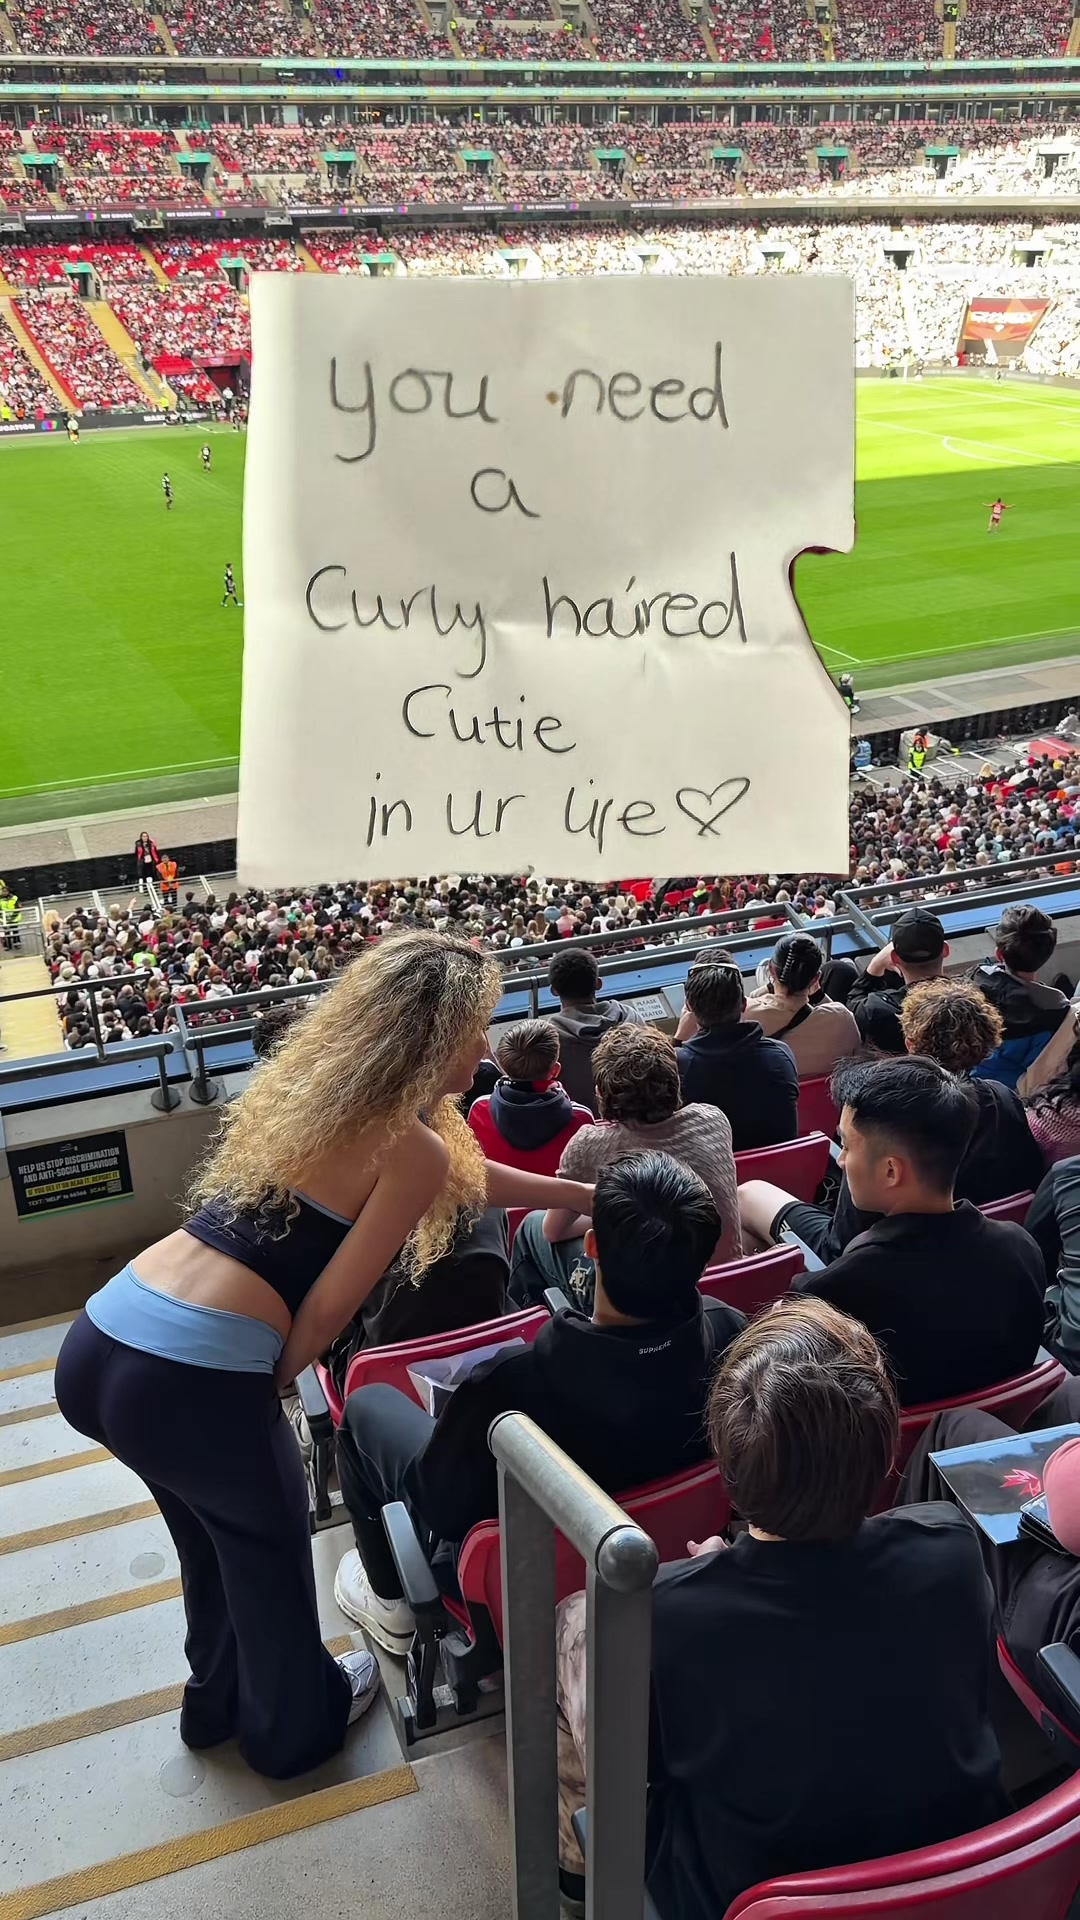 you need
a
Curly haired
Cutie
in ur life♡
PLEASE
SEATED
HELP US STOP DISCRIMINATION
AND ANTI-SOCIAL BEHAVIOUR
IF YOU SEE IT OR HEAR IT: REPORT IT
TEXT 'HELP' to 66566
SUPREME